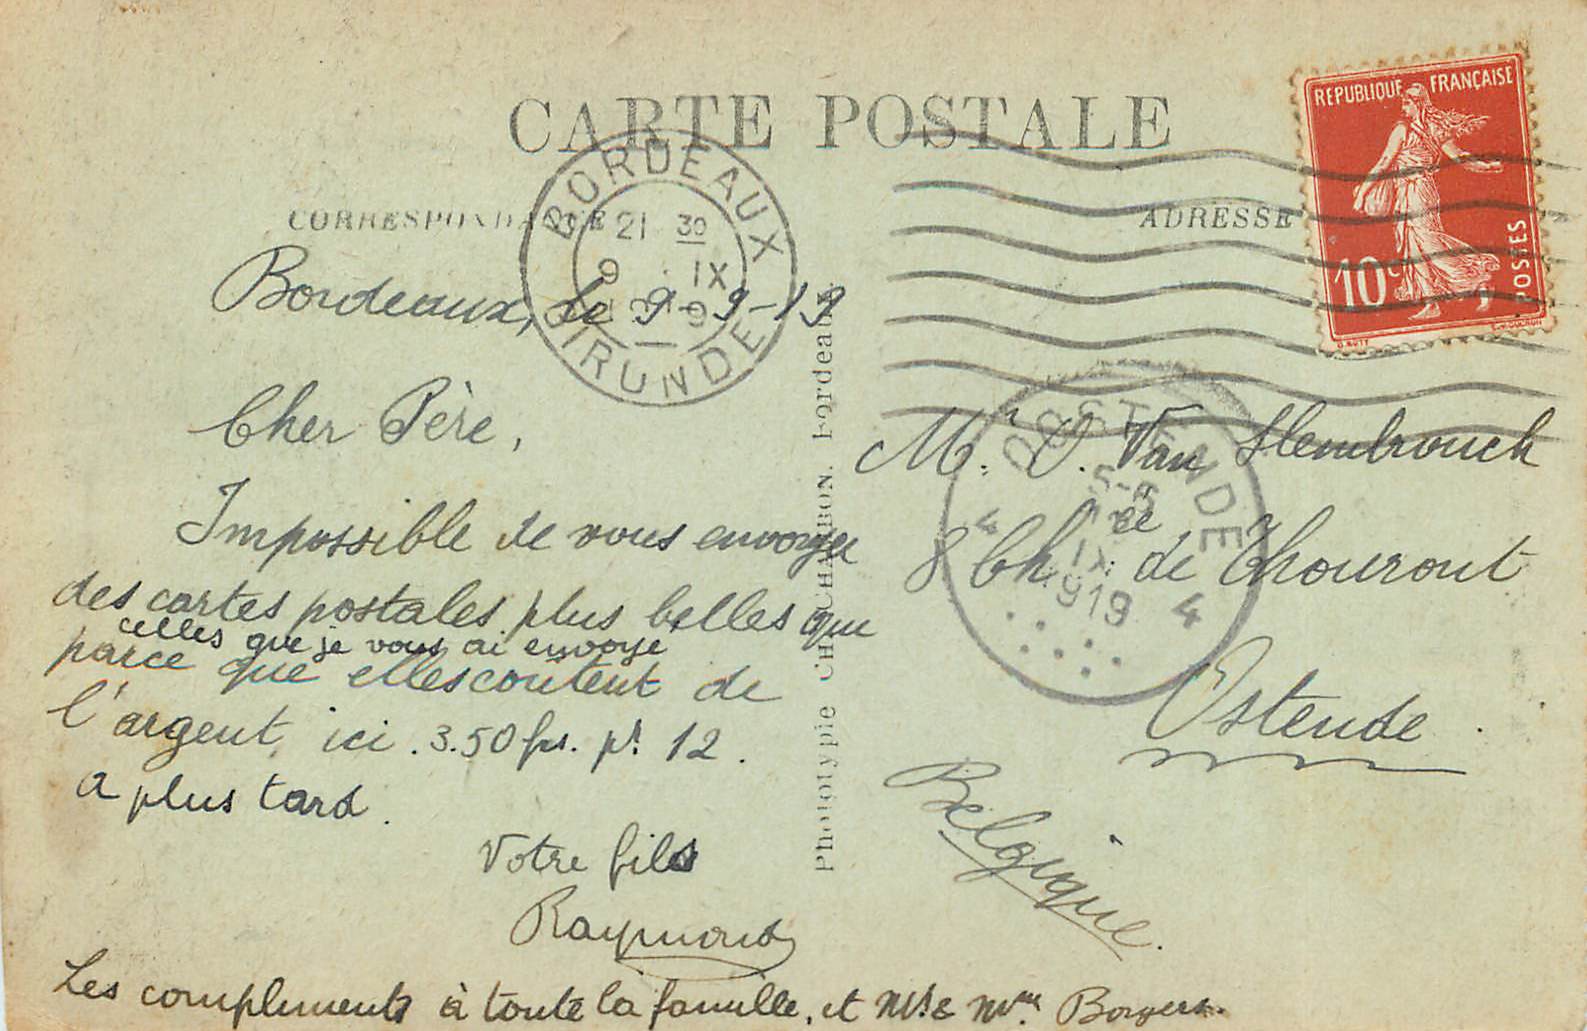 CARTE POSTALE
CORRESPONDANCE
ADRESSE
RÉPUBLIQUE FRANÇAISE
10c
POSTES
BORDEAUX
21 30
9 IX
GIRONDE
OOSTENDE
IX
1919
4 4
Bordeaux, le 9-9-19
Cher Père,
Impossible de vous envoyer
des cartes postales plus belles que
celles que je vous ai envoyé
parce que elles coûtent de
l'argent, ici. 3.50 frs. pr 12.
a plus tard.
Votre fils
Raymond
Les compliments à toute la famille, et Mr & Mme
Mr. Van
8 Chée de Thourout
Ostende.
Belgique.
Phototypie Bordeaux